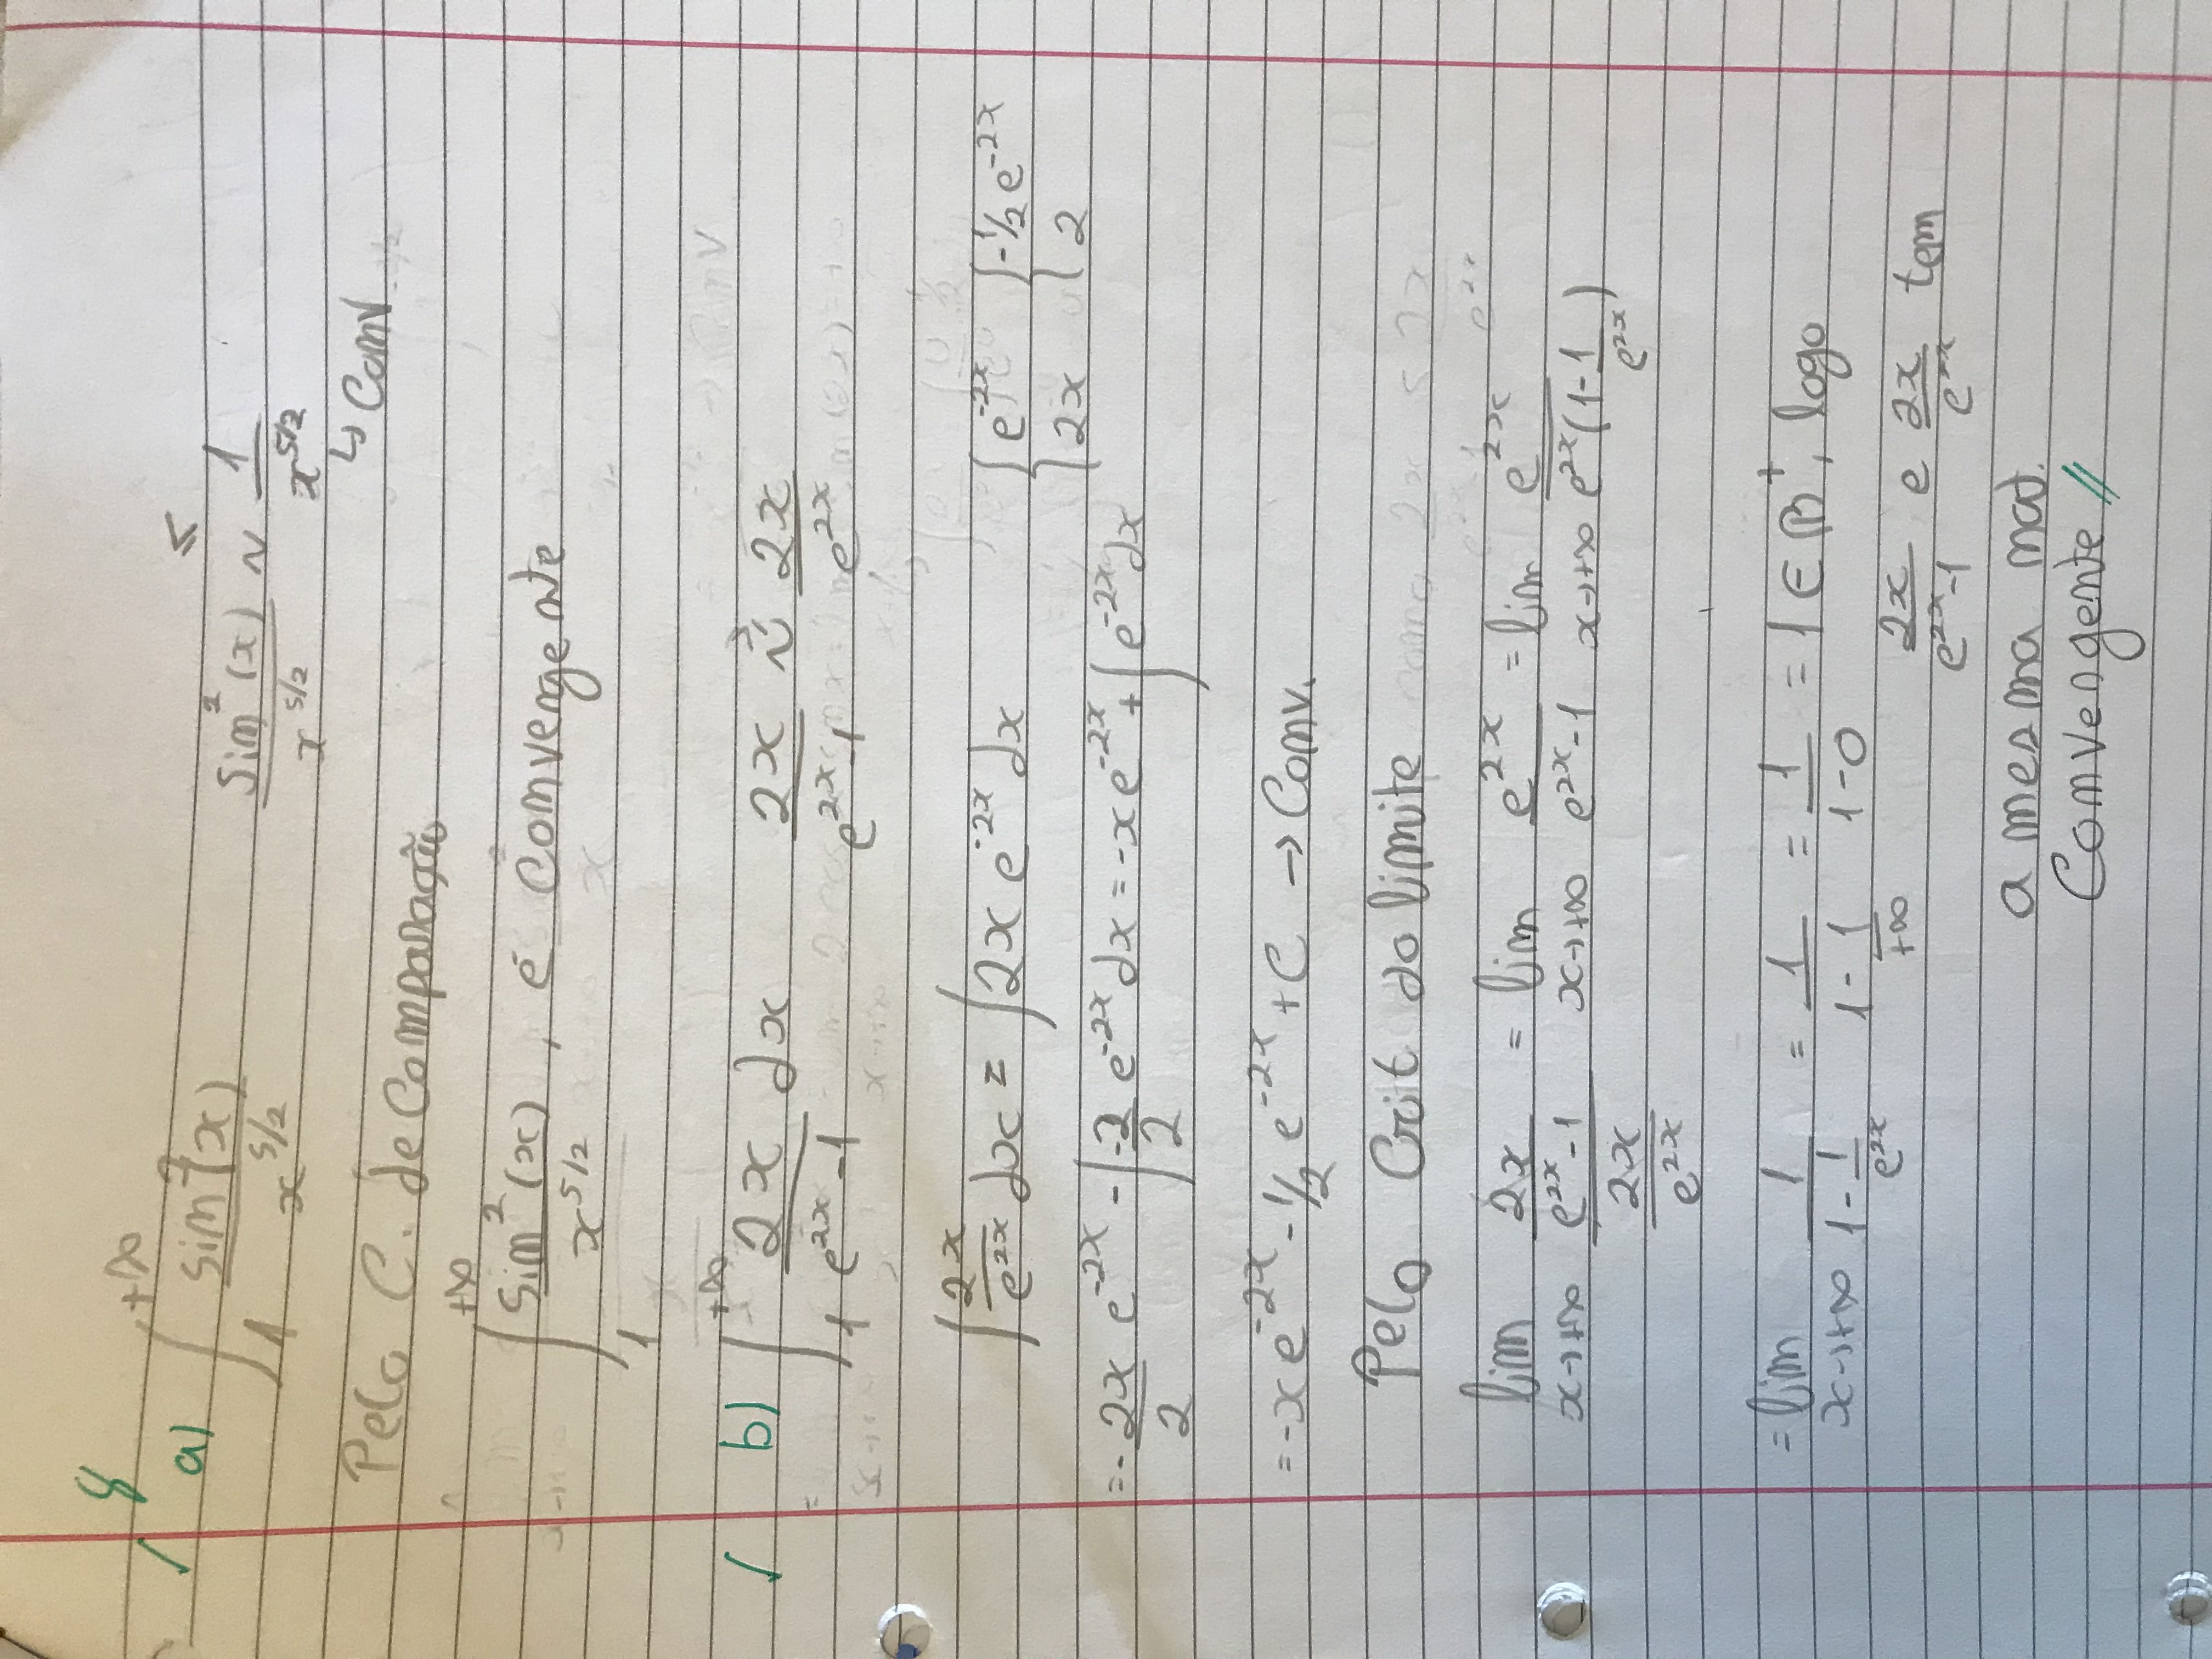 8
a) ∫₁^{+∞} sin²(x)/x^{5/2}    sin²(x)/x^{5/2} ~ ≤ 1/x^{5/2}
↳ Conv
Pelo C. de Comparação
∫₁^{+∞} sin²(x)/x^{5/2} , é convergente
b) ∫₁^{+∞} 2x/(e^{2x}-1) dx    2x/(e^{2x}-1) ~ > 2x/e^{2x}
∫ 2x/e^{2x} dx = ∫ 2x e^{-2x} dx    { e^{-2x} { -1/2 e^{-2x}
{ 2x { 2
= -2x/2 e^{-2x} - ∫ -2/2 e^{-2x} dx = -x e^{-2x} + ∫ e^{-2x} dx
= -x e^{-2x} - 1/2 e^{-2x} + C → Conv.
Pelo Crit do limite
lim x→+∞ (2x/(e^{2x}-1))/(2x/e^{2x}) = lim x→+∞ e^{2x}/(e^{2x}-1) = lim x→+∞ e^{2x}/(e^{2x}(1-1/e^{2x}))
= lim x→+∞ 1/(1-1/e^{2x}) = 1/(1-1/+∞) = 1/(1-0) = 1 ∈ ℝ⁺, logo
2x/(e^{2x}-1) e 2x/e^{2x} tem
a mesma nat.
Convergente //